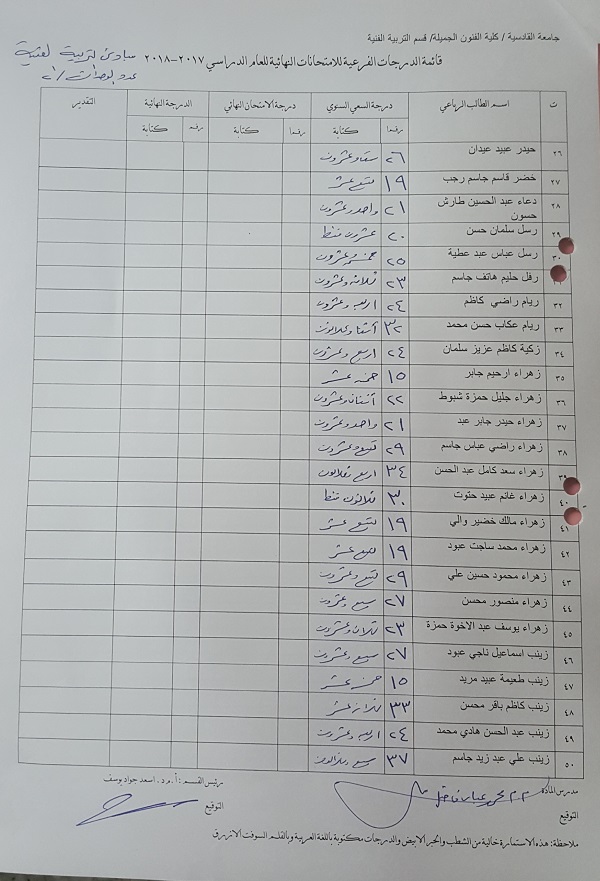 جامعة القادسية / كلية الفنون الجميلة/ قسم التربية الفنية
قائمة الدرجات الفرعية للامتحانات النهائية للعام الدراسي ٢٠١٧-٢٠١٨
مبادئ تربية فنية
عدد الوحدات /٢
ت اسم الطالب الرباعي درجة السعي السنوي درجة الامتحان النهائي الدرجة النهائية التقدير
رقما كتابة رقما كتابة رقم كتابة
٢٦ حيدر عبيد عيدان ٢٦ ستة وعشرون
٢٧ خضر قاسم جاسم رجب ١٩ تسع عشر
٢٨ دعاء عبد الحسين طارش حسون ٢١ واحد وعشرون
٢٩ رسل سلمان حسن ٢٠ عشرون فقط
٣٠ رسل عباس عبد عطية ٢٥ خمسة وعشرون
رفل حليم هاتف جاسم ٢٣ ثلاثة وعشرون
٣٢ ريام راضي كاظم ٢٤ اربعة وعشرون
٣٣ ريام عكاب حسن محمد ٣٢ أثنا وثلاثون
٣٤ زكية كاظم عزيز سلمان ٢٤ اربع وعشرون
٣٥ زهراء ارحيم جابر ١٥ خمسة عشر
٣٦ زهراء جليل حمزة شبوط ٢٢ أثنان وعشرون
٣٧ زهراء حيدر جابر عبد ٢١ واحد وعشرون
٣٨ زهراء راضي عباس جاسم ٢٩ تسع وعشرون
٣٩ زهراء سعد كامل عبد الحسن ٣٤ اربع وثلاثون
٤٠ زهراء غانم عبيد حتوت ٣٠ ثلاثون فقط
٤١ زهراء مالك خضير والي ١٩ تسع عشر
٤٢ زهراء محمد ساجت عبود ١٩ تسع عشر
٤٣ زهراء محمود حسين علي ٢٩ تسع وعشرون
٤٤ زهراء منصور محسن ٢٧ سبع وعشرون
٤٥ زهراء يوسف عبد الاخوة حمزة ٢٣ ثلاث وعشرون
٤٦ زينب اسماعيل ناجي عبود ٢٧ سبع وعشرون
٤٧ زينب طعيمة عبيد مريد ١٥ خمس عشر
٤٨ زينب كاظم باقر محسن ٣٣
٤٩ زينب عبد الحسن هادي محمد ٢٤ اربعة وعشرون
٥٠ زينب علي عبد زيد جاسم ٣٧ سبع وثلاثون
مدرس المادة رئيس القسم : أ . م . د . اسعد جواد يوسف
التوقيع التوقيع
ملاحظة: هذه الاستمارة خالية من الشطب والحبر الابيض والدرجات مكتوبة باللغة العربية وبالقلم السوفت الازرق